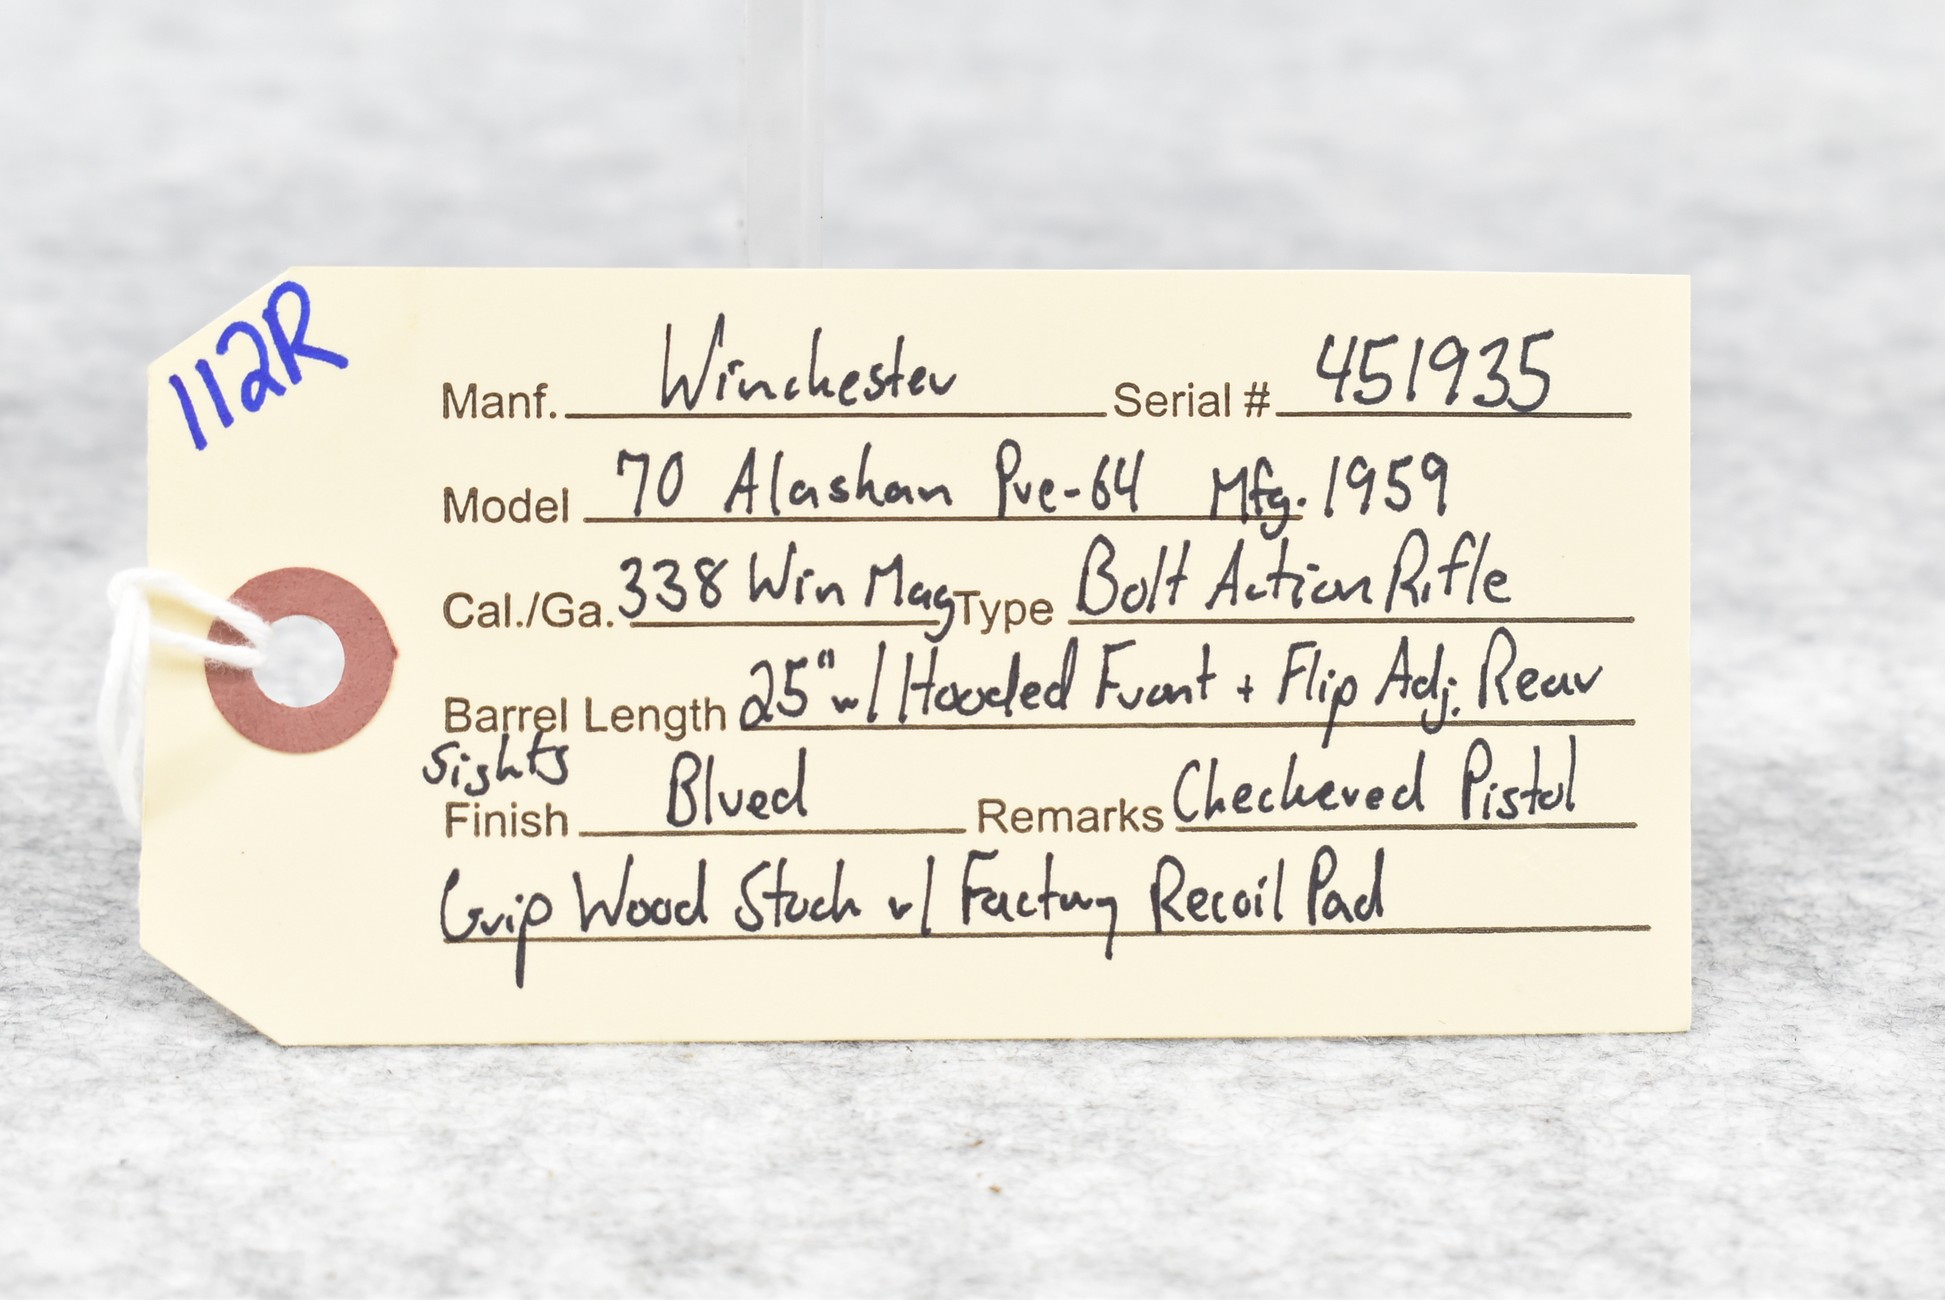 112R
Manf. Winchester Serial # 451935
Model 70 Alaskan Pre-64 Mfg. 1959
Cal./Ga. 338 Win Mag Type Bolt Action Rifle
Barrel Length 25" w/ Hooded Front + Flip Adj. Rear
Sights
Finish Blued Remarks Checkered Pistol
Grip Wood Stock w/ Factory Recoil Pad